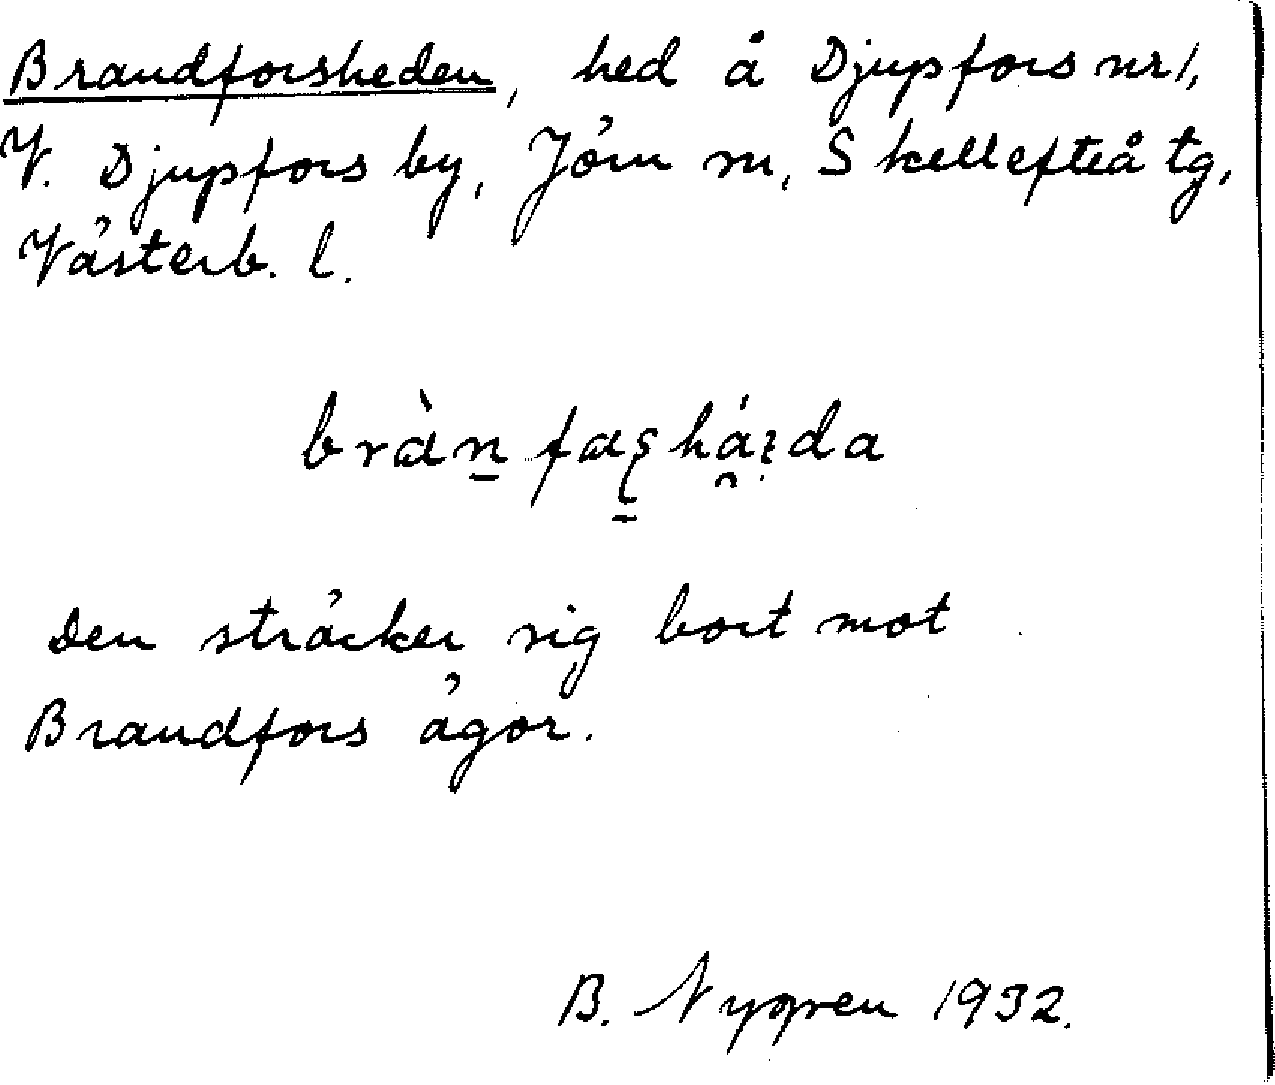 Brandforsheden, hed å Djupfors nr 1,
V. Djupfors by, Jörn sn, Skellefteå tg,
Västerb. l.
Den sträcker sig bort mot
Brandfors ägor.
B. Nygren 1932.